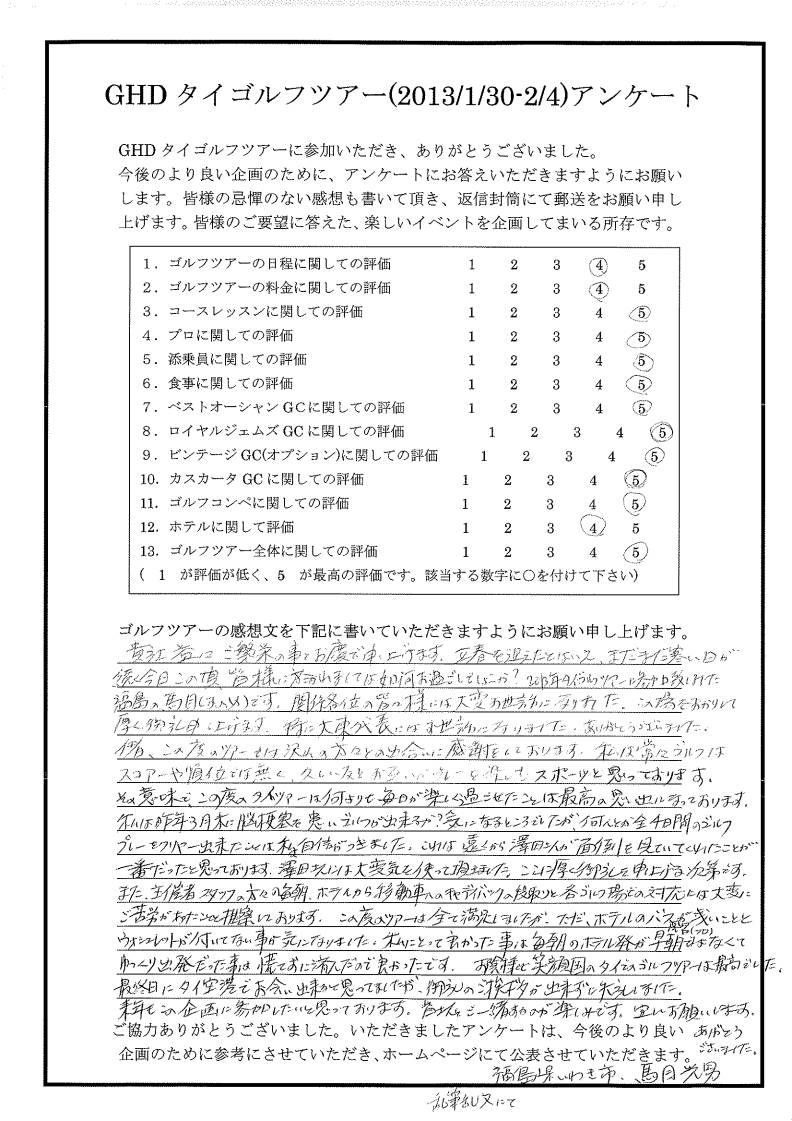 GHD タイゴルフツアー(2013/1/30-2/4)アンケート
GHD タイゴルフツアーに参加いただき、ありがとうございました。
今後のより良い企画のために、アンケートにお答えいただきますようにお願い
します。皆様の忌憚のない感想も書いて頂き、返信封筒にて郵送をお願い申し
上げます。皆様のご要望に答えた、楽しいイベントを企画してまいる所存です。
1．ゴルフツアーの日程に関しての評価 1 2 3 4 5
2．ゴルフツアーの料金に関しての評価 1 2 3 4 5
3．コースレッスンに関しての評価 1 2 3 4 5
4．プロに関しての評価 1 2 3 4 5
5．添乗員に関しての評価 1 2 3 4 5
6．食事に関しての評価 1 2 3 4 5
7．ベストオーシャン GC に関しての評価 1 2 3 4 5
8．ロイヤルジェムズ GC に関しての評価 1 2 3 4 5
9．ビンテージ GC(オプション)に関しての評価 1 2 3 4 5
10. カスカータ GC に関しての評価 1 2 3 4 5
11. ゴルフコンペに関しての評価 1 2 3 4 5
12. ホテルに関して評価 1 2 3 4 5
13. ゴルフツアー全体に関しての評価 1 2 3 4 5
( 1 が評価が低く、5 が最高の評価です。該当する数字に○を付けて下さい)
ゴルフツアーの感想文を下記に書いていただきますようにお願い申し上げます。
貴社益々ご繁栄の事とお慶び申し上げます。立春を迎えたとはいえ、まだまだ寒い日が
続く今日この頃 皆様に於かれましては如何お過ごしでしょうか?
福島の馬目(まのめ)です。関係各位の皆々様には大変お世話になりました。この場をおかりして
厚く御礼申し上げます。特に大東代表にはお世話になりました。ありがとうございました。
この度のツアーでは沢山の方々との出会いに感謝をしております。私は常々ゴルフは
スコアーや順位では無く、 スポーツと思っております。
その意味で、この度のタイツアーは何よりも毎日が楽しく過ごせたことは最高の思い出となっております。
私は昨年3月末に脳梗塞を患いゴルフが出来るか?気になるところでしたが何とか全4日間のゴルフ
プレーをクリヤー出来たことは私自信がつきました。これは遠くから澤田さんが面倒を見ていてくれたことが
一番だったと思っております。澤田さんには大変気を使って頂きました。ここに厚く御礼を申し上げる次第です。
また、主催者スタッフの方々の毎朝、ホテルから移動車へのキャディバックの段取りと各ゴルフ場との対応には大変に
ご苦労があったことと推察しております。この度のツアーは全て満足しましたが、ただ、ホテルのバスが浅いことと
ウォシュレットが付いてない事が気になりました。私にとって良かった事は毎朝のホテル発が早朝ではなくて
ゆっくり出発だった事は慌てずに済んだので良かったです。お陰様で笑顔国のタイでのゴルフツアーは最高でした。
最終日にタイ空港でお会い出来ると思ってましたが、御礼のご挨拶が出来ずに失礼しました。
来年もこの企画に参加したいと思っております。皆さんとご一緒するのが楽しみです。宜しくお願いします。
ご協力ありがとうございました。いただきましたアンケートは、今後のより良い ありがとう
企画のために参考にさせていただき、ホームページにて公表させていただきます。 ございました。
福島県いわき市、馬目光男
乱筆乱文にて